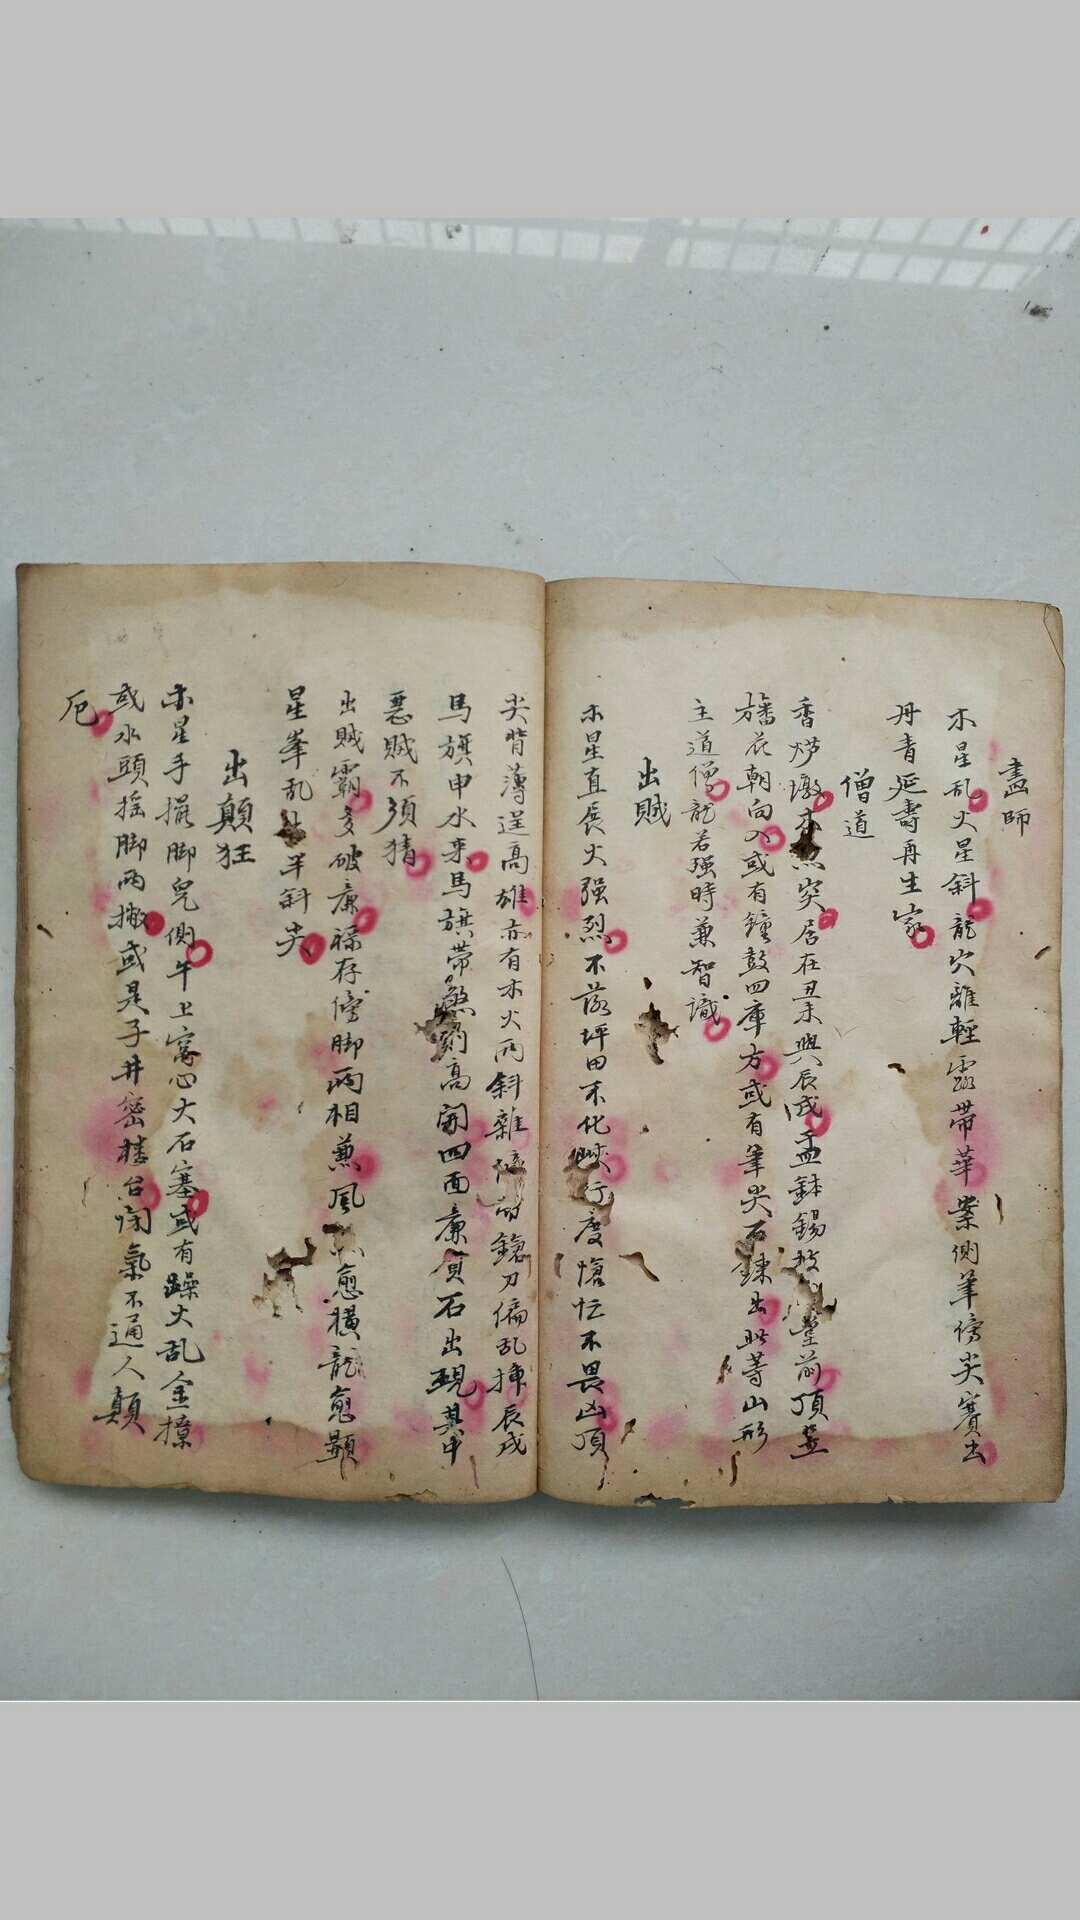 畫師
木星乱火星斜龍穴離輕露帶華案側筆傍尖賽出
丹青延壽再生家
僧道
香炉墩 突居在丑未與辰戌盂鉢錫杖 堂前頂並
旛花朝向入或有鐘鼓四庫方或有筆尖石鍊出此等山形
主道僧龍若强時兼智識
出賊
木星直長火强烈不落坪田不化峽行度愴忙不畏凶頂
尖背薄逞高雄亦有木火两斜雜 鎗刀偏乱揮辰戌
馬旗申水來馬旗帶煞 高開四面廉貞石出現其中
惡賊不須猜
出賊霸多破廉祿存傍脚两相兼風 愈橫龍愈顯
星峯乱 半斜尖
出顛狂
木星手擺脚皃側午上窩心大石塞或有躁火乱金撞
或水頭摇脚两撇或是子井密楼台 氣不通人顛
厄